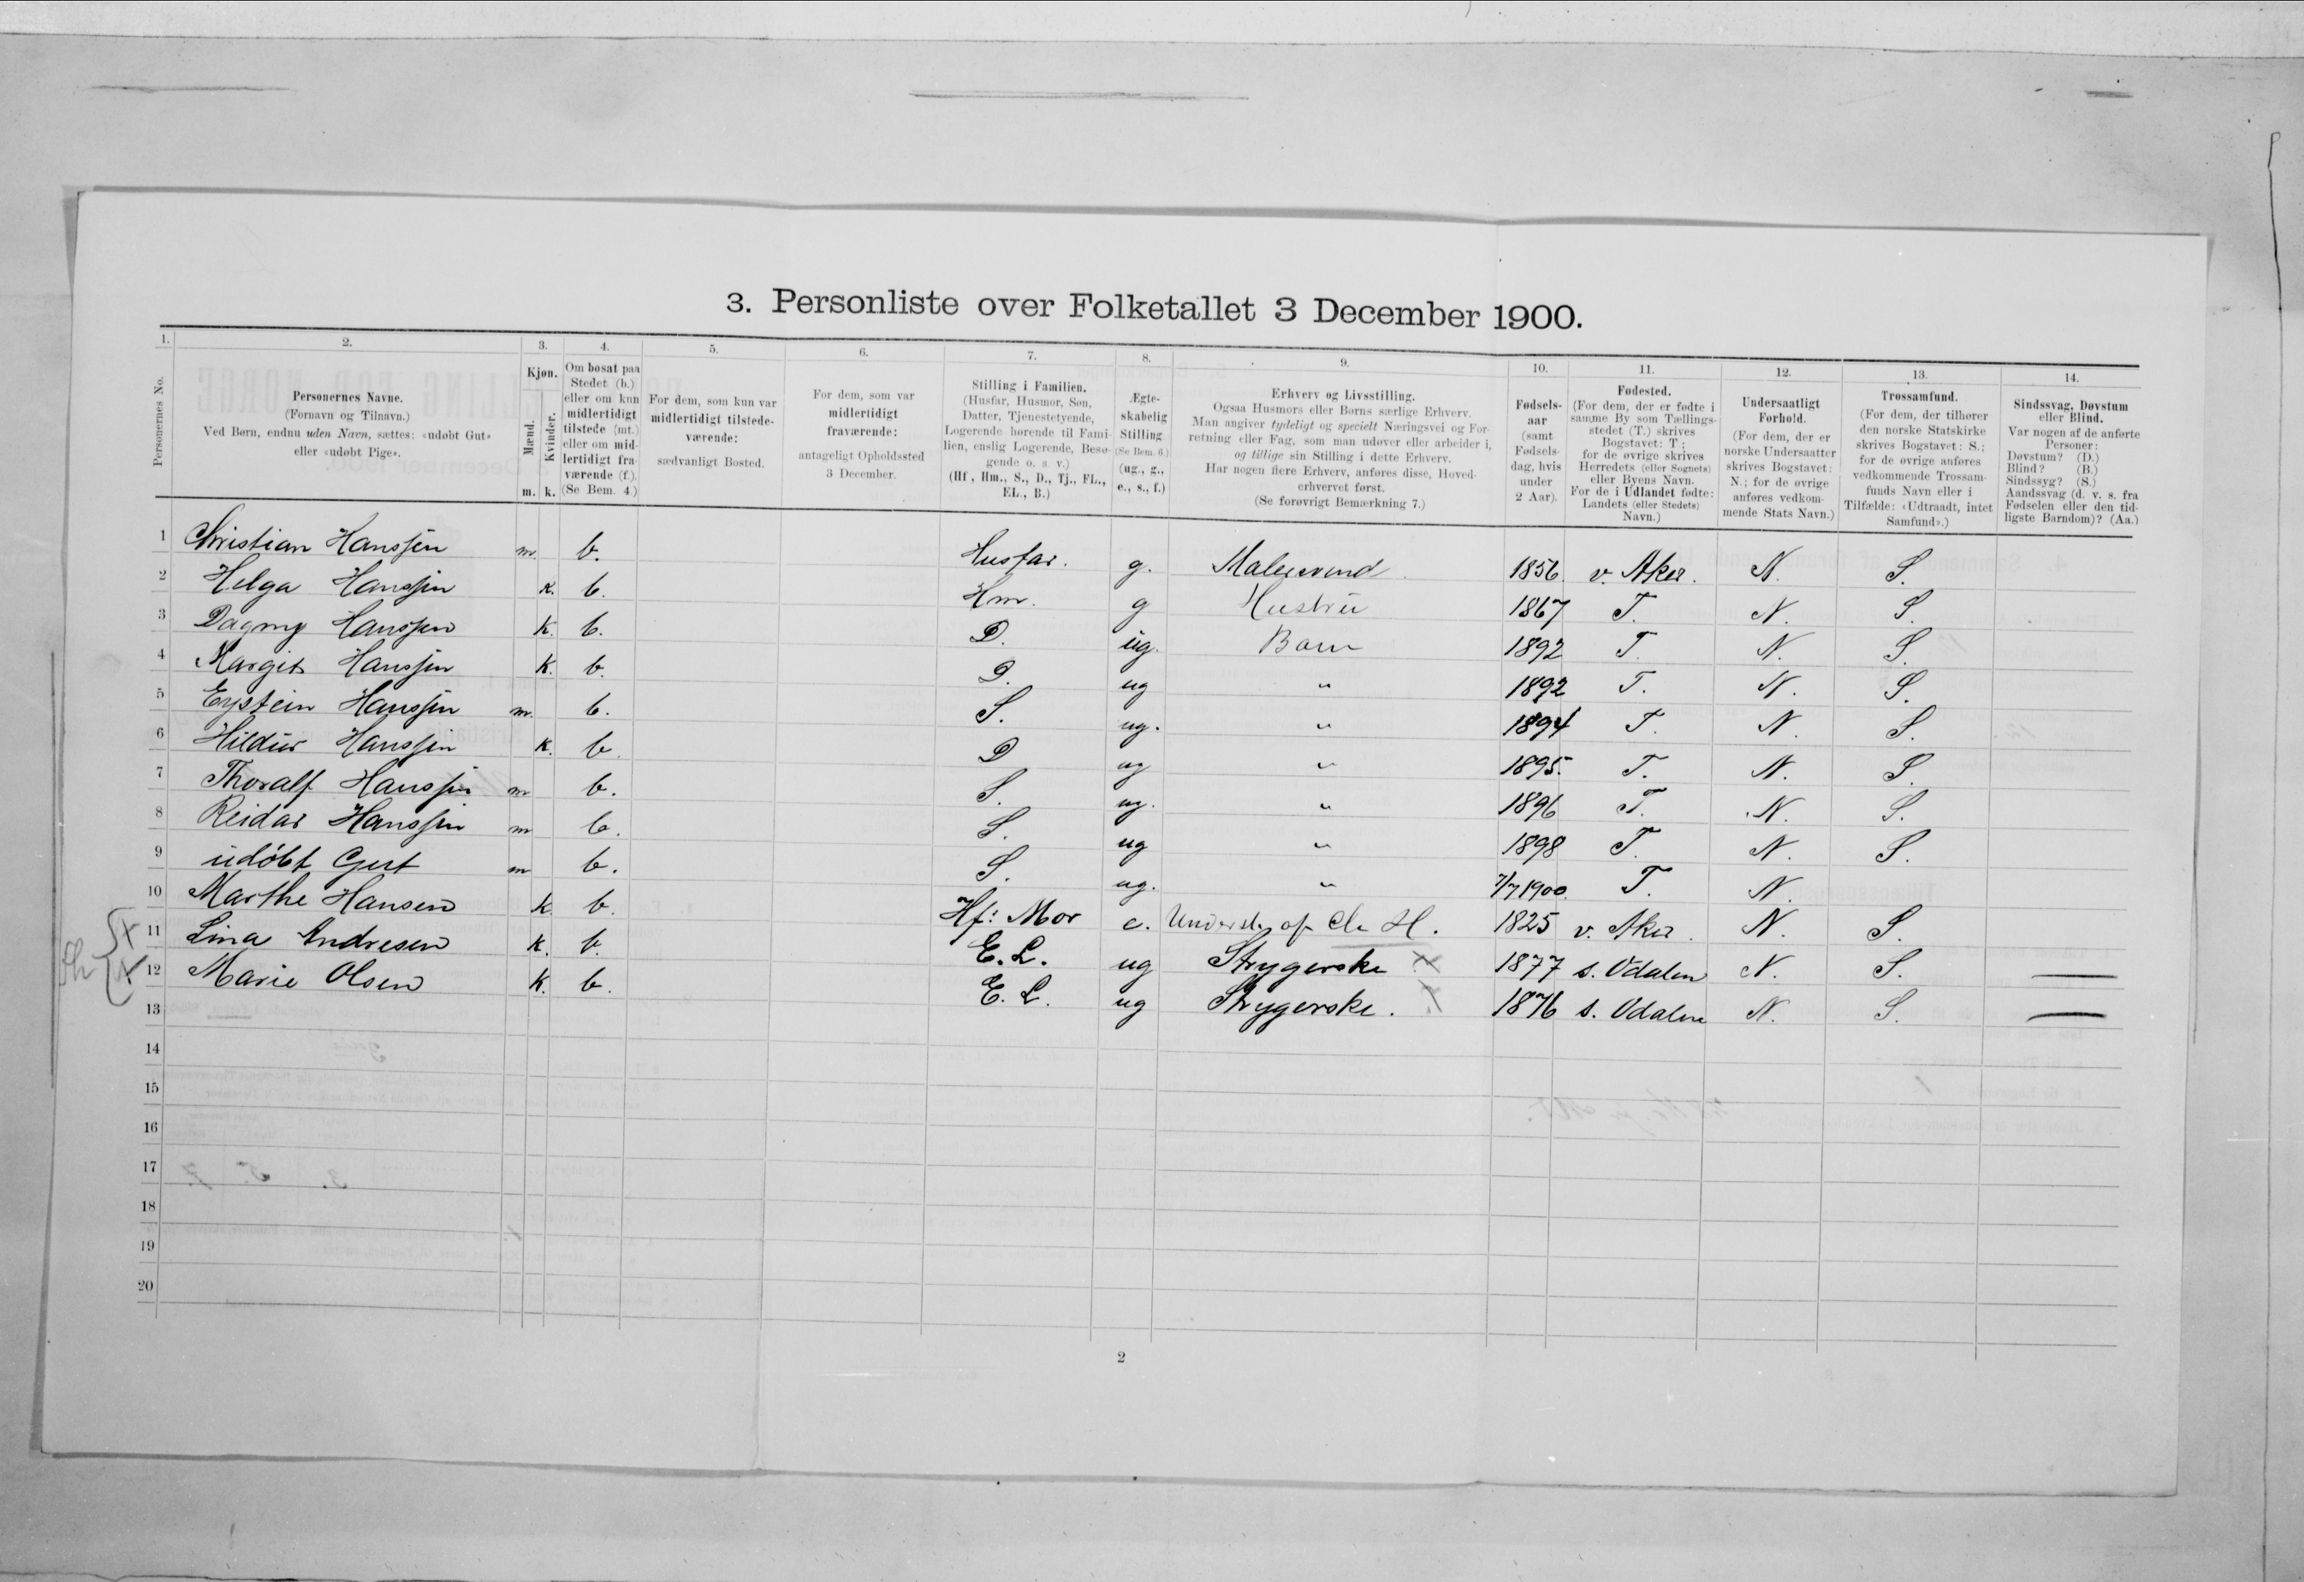 3. Personliste over Folketallet 3 December 1900.
1. 2. 3. 4. 5. 6. 7. 8. 9. 10. 11. 12. 13. 14.
Personernes No.
Personernes Navne.
(Fornavn og Tilnavn.)
Ved Børn, endnu uden Navn, sættes: «udøbt Gut»
eller «udøbt Pige».
Kjøn.
Mænd.
Kvinder.
m. k.
Om bosat paa
Stedet (b.)
eller om kun
midlertidigt
tilstede (mt.)
eller om mid-
lertidigt fra-
værende (f.).
(Se Bem. 4.)
For dem, som kun var
midlertidigt tilstede-
værende:
sædvanligt Bosted.
For dem, som var
midlertidigt
fraværende:
antageligt Opholdssted
3 December.
Stilling i Familien.
(Husfar, Husmor, Søn,
Datter, Tjenestetyende,
Logerende hørende til Fami-
lien, enslig Logerende, Besø-
gende o. s. v.)
(Hf., Hm., S., D., Tj., FL.,
EL., B.)
Ægte-
skabelig
Stilling
(Se Bem. 6.)
(ug., g.,
e., s., f.)
Erhverv og Livsstilling.
Ogsaa Husmors eller Børns særlige Erhverv.
Man angiver tydeligt og specielt Næringsvei og For-
retning eller Fag, som man udøver eller arbeider i,
og tillige sin Stilling i dette Erhverv.
Har nogen flere Erhverv, anføres disse, Hoved-
erhvervet først.
(Se forøvrigt Bemærkning 7.)
Fødsels-
aar
(samt
Fødsels-
dag, hvis
under
2 Aar).
Fødested.
(For dem, der er fødte i
samme By som Tællings-
stedet (T.) skrives
Bogstavet: T.;
for de øvrige skrives
Herredets (eller Sognets)
eller Byens Navn.
For de i Udlandet fødte:
Landets (eller Stedets)
Navn.)
Undersaatligt
Forhold.
(For dem, der er
norske Undersaatter
skrives Bogstavet:
N.; for de øvrige
anføres vedkom-
mende Stats Navn.)
Trossamfund.
(For dem, der tilhører
den norske Statskirke
skrives Bogstavet: S.;
for de øvrige anføres
vedkommende Trossam-
funds Navn eller i
Tilfælde: «Udtraadt, intet
Samfund».)
Sindssvag, Døvstum
eller Blind.
Var nogen af de anførte
Personer:
Døvstum? (D.)
Blind? (B.)
Sindssyg? (S.)
Aandssvag (d. v. s. fra
Fødselen eller den tid-
ligste Barndom)? (Aa.)
1 Christian Hanssen m. b. Husfar. g. Malersvend. 1856. v. Aker. N. S.
2 Helga Hanssen K. b. Hm. g Hustru 1867 T. N. S.
3 Dagny Hanssen K. b. D. ug. Barn 1892 T. N. S.
4 Margit Hanssen K. b. D. ug " 1892 T. N. S.
5 Eystein Hanssen m. b. S. ug. " 1894 T. N. S.
6 Hildur Hanssen K. b. D ug " 1895. T. N. S.
7 Thoralf Hanssen m b. S. ug. " 1896 T. N. S.
8 Reidar Hanssen m b. S. ug " 1898 T. N. S.
9 udøbt Gut m b. S. ug. " 7/7 1900. T. N.
10 Marthe Hansen K b. Hf: Mor e. Underst. af Chr H. 1825 v. Aker. N. S.
11 Lina Andresen K. b. E. L. ug Strygerske 1877 s. Odalen N. S. —
12 Marie Olsen K. b. E. L. ug Strygerske. 1876 s. Odalen N. S. —
13
14
15
16
17
18
19
20
2